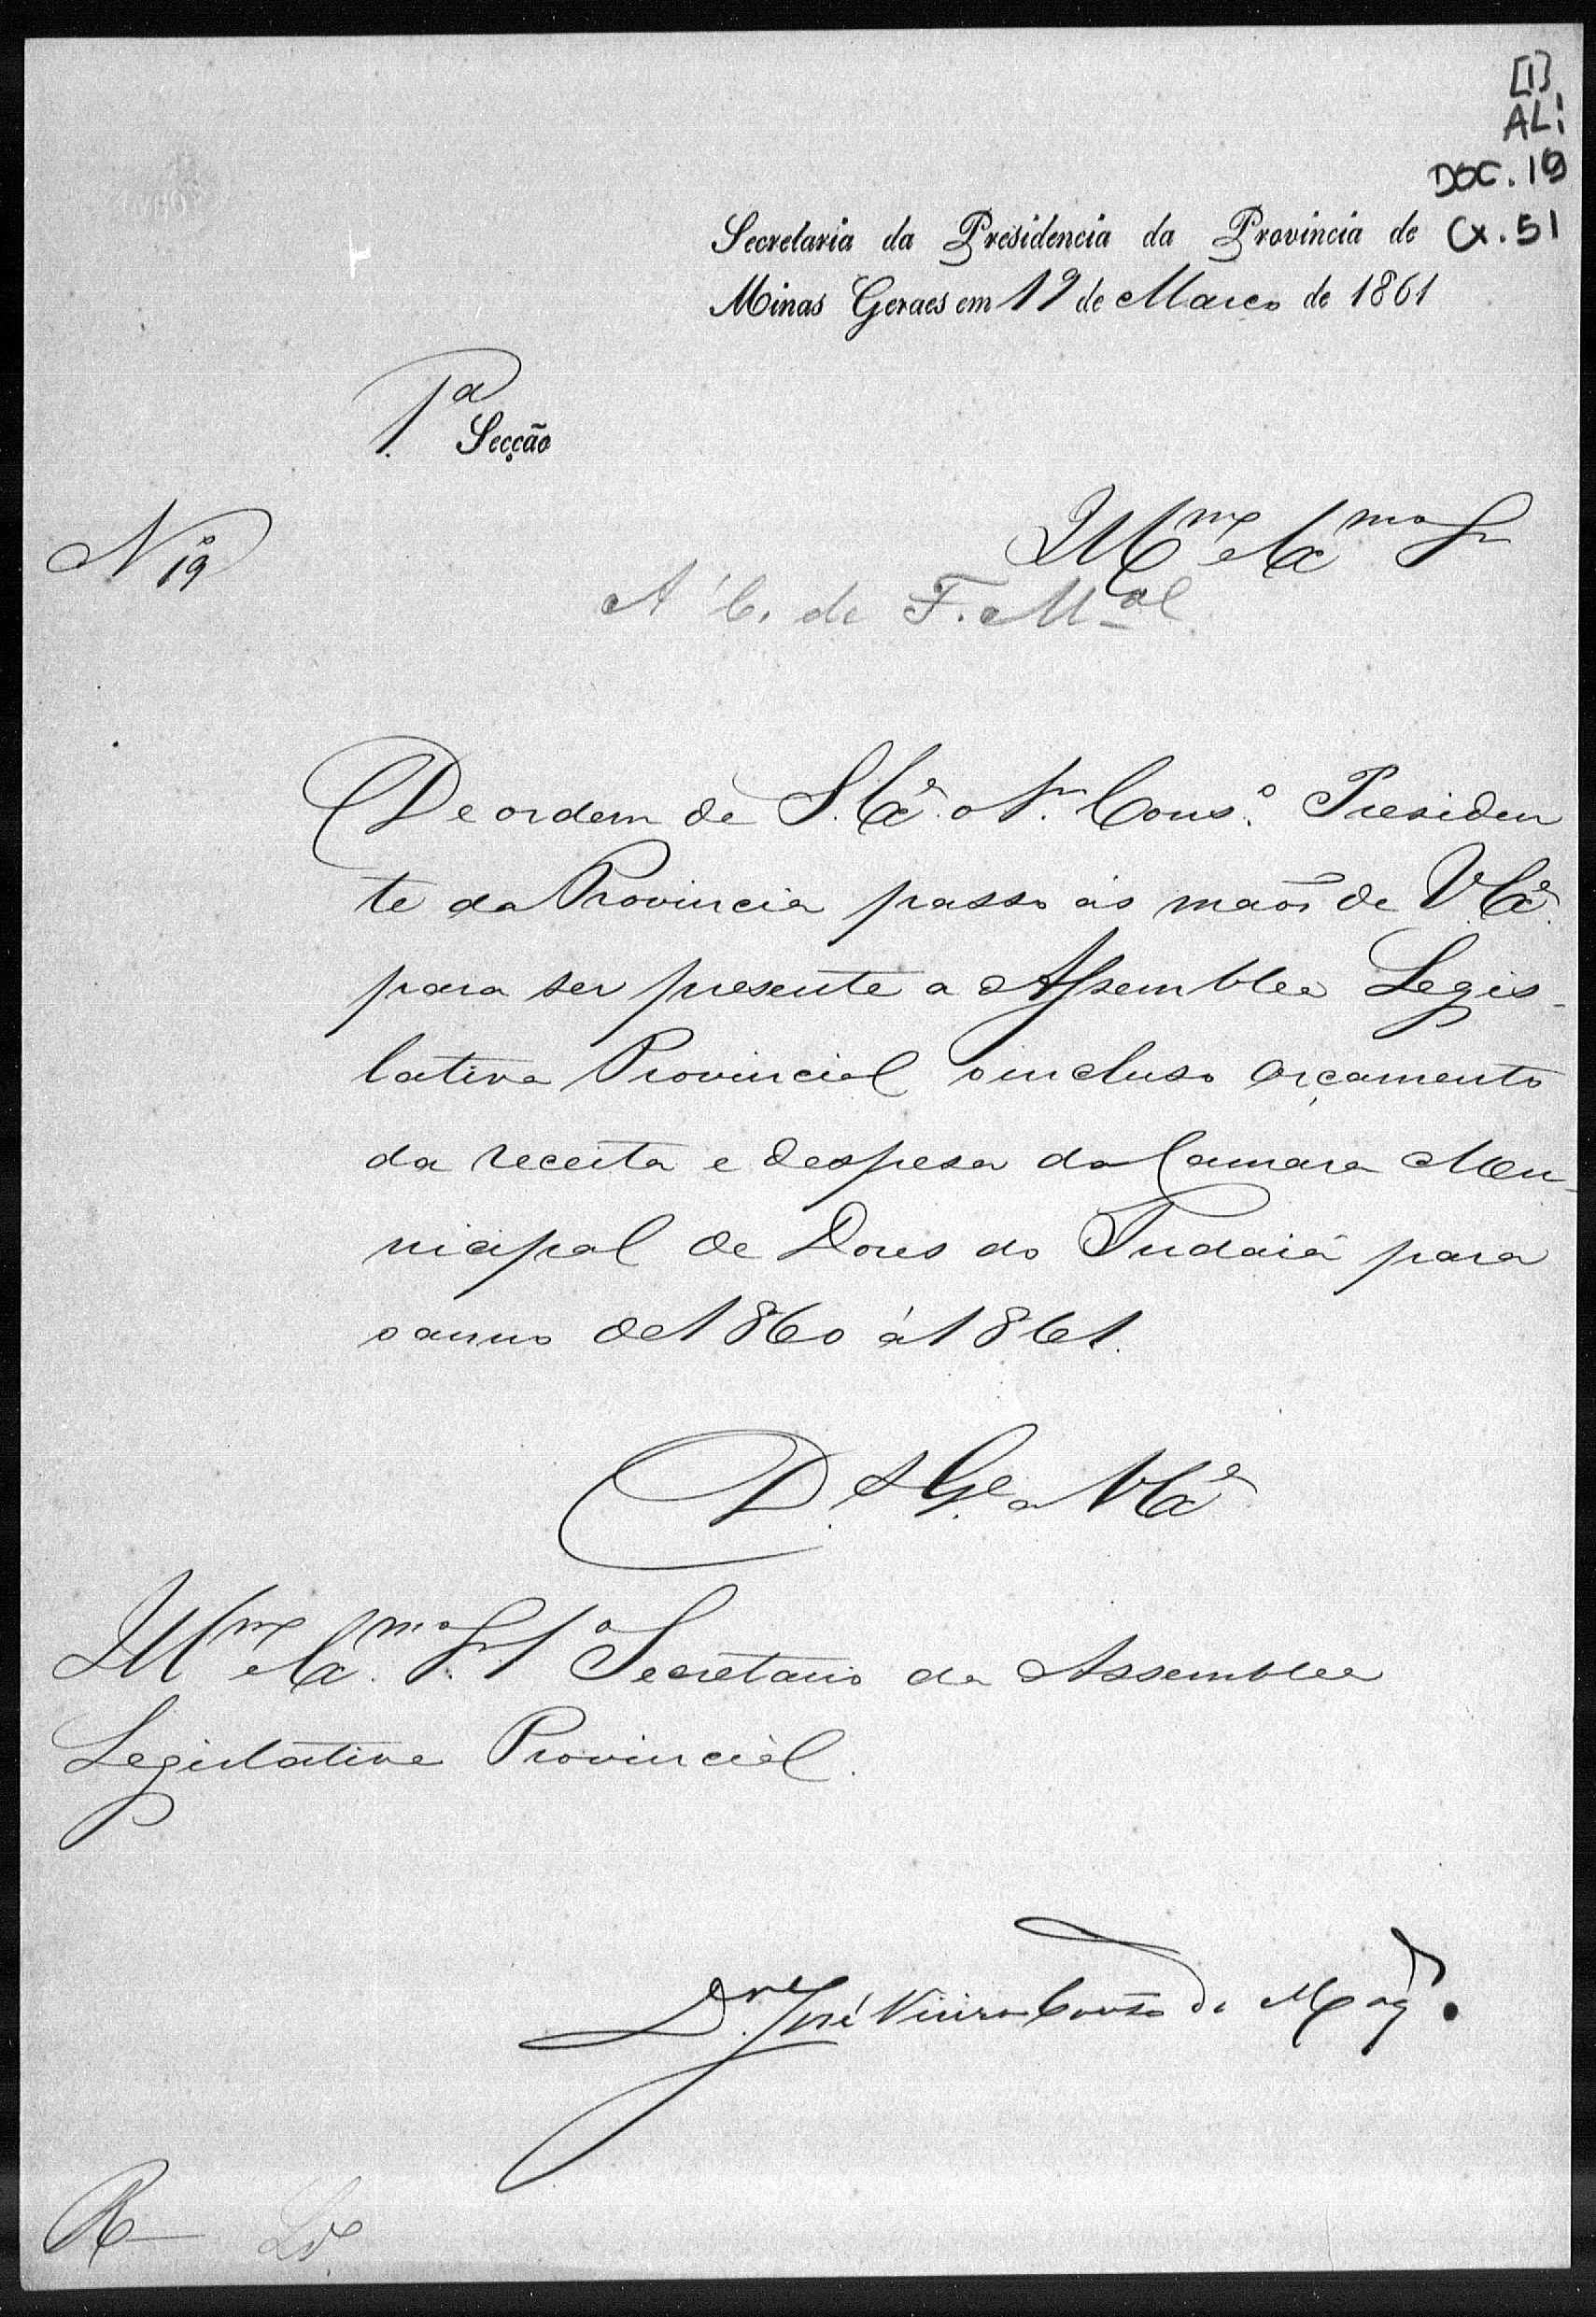 [1]
AL!
DOC. 19
Cx. 51
Secretaria da Presidencia da Provincia de
Minas Geraes em 19 de Março de 1861
1ª Secção
Nº 19
Illmº e Exmº Sr
A' C. de F. Mal
De ordem de S. Exª o Sr. Consº. Presiden
te da Provincia passo ás maõs de V. Exª
para ser presente a Assemblea Legis-
lativa Provincial o incluso orçamento
da receita e despesa da Camara Mu-
nicipal de Dores do Indaiá para
o anno de 1860 á 1861.
D. s Ge a V Exª
Illmº e Exmº Sr. 1º Secretario da Assemblea
Legislativa Provincial.
José Vieira Couto de Mages.
R